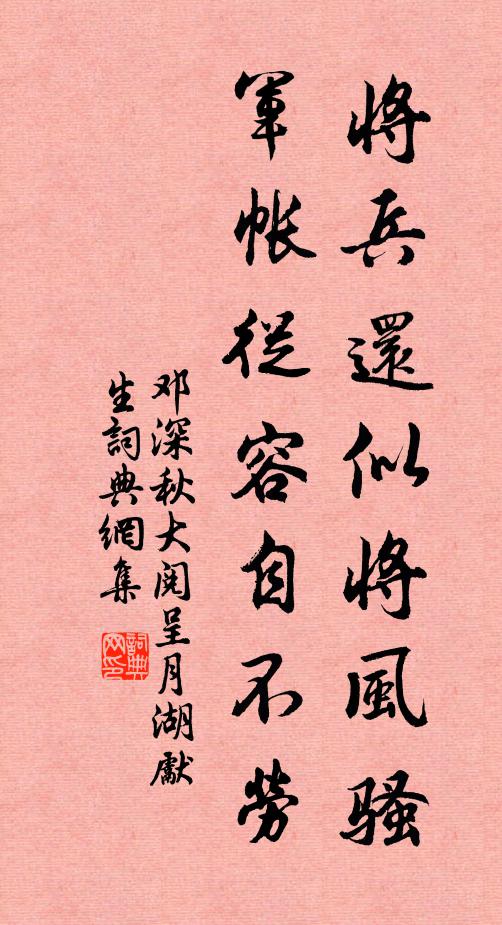 將兵還似將風騷
軍帳從容自不勞
邓深秋大阅呈月湖獻
生詞典網集
詞典网印